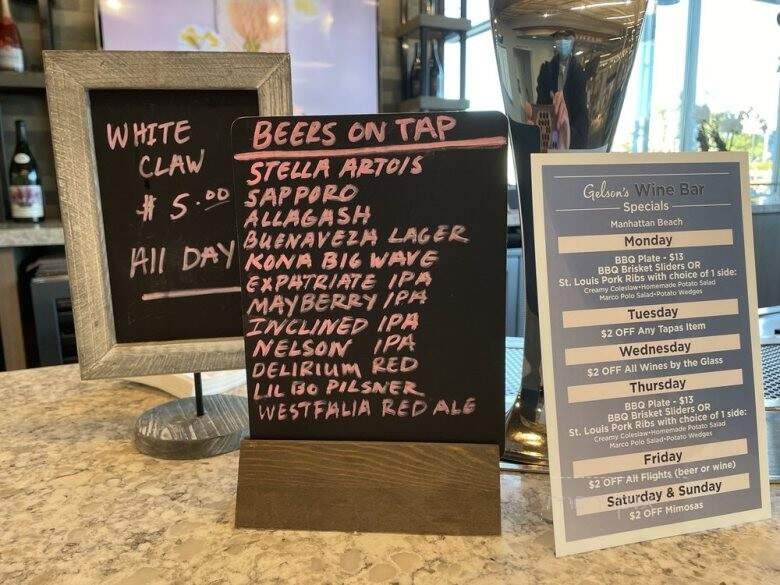 WHITE
CLAW
# 5.00
All DAY
BEERS ON TAP
STELLA ARTOIS
SAPPORO
ALLAGASH
BUENAVEZA LAGER
KONA BIG WAVE
EXPATRIATE IPA
MAYBERRY IPA
INCLINED IPA
NELSON IPA
DELIRIUM RED
LIL BO PILSNER
WESTFALIA RED ALE
Gelson's Wine Bar
Specials
Manhattan Beach
Monday
BBQ Plate - $13
BBQ Brisket Sliders OR
St. Louis Pork Ribs with choice of 1 side:
Creamy Coleslaw•Homemade Potato Salad
Marco Polo Salad•Potato Wedges
Tuesday
$2 OFF Any Tapas Item
Wednesday
$2 OFF All Wines by the Glass
Thursday
BBQ Plate - $13
BBQ Brisket Sliders OR
St. Louis Pork Ribs with choice of 1 side:
Creamy Coleslaw•Homemade Potato Salad
Marco Polo Salad•Potato Wedges
Friday
$2 OFF All Flights (beer or wine)
Saturday & Sunday
$2 OFF Mimosas